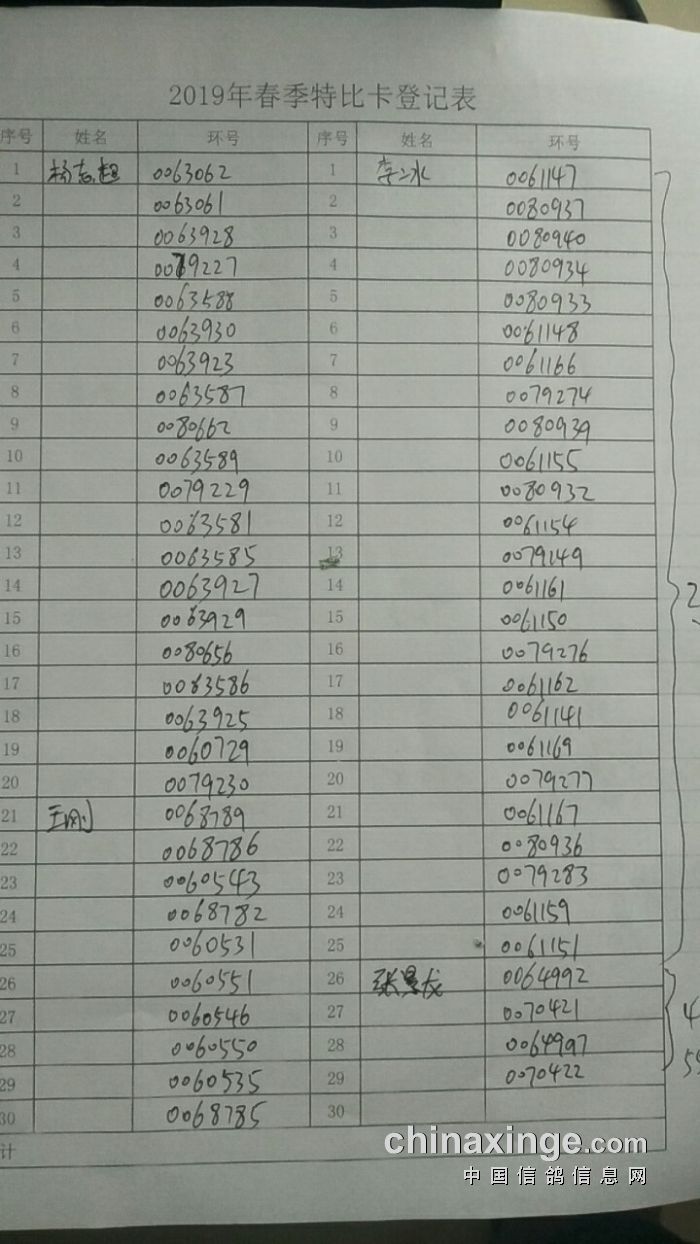 2019年春季特比卡登记表
序号 姓名 环号 序号 姓名 环号
1 杨志超 0063062 1 李二冰 0061147
2 0063061 2 0080937
3 0063928 3 0080940
4 0079227 4 0080934
5 0063588 5 0080933
6 0063930 6 0061148
7 0063923 7 0061166
8 0063587 8 0079274
9 0080662 9 0080939
10 0063589 10 0061155
11 0079229 11 0080932
12 0063581 12 0061154
13 0063585 13 0079149
14 0063927 14 0061161
15 0063929 15 0061150
16 0080656 16 0079276
17 0063586 17 0061162
18 0063925 18 0061141
19 0060729 19 0061169
20 0079230 20 0079277
21 王刚 0068789 21 0061167
22 0068786 22 0080936
23 0060543 23 0079283
24 0068782 24 0061159
25 0060531 25 0061151
26 0060551 26 张景龙 0064992
27 0060546 27 0070421
28 0060550 28 0064997
29 0060535 29 0070422
30 0068785 30
计
chinaxinge.com
中国信鸽信息网